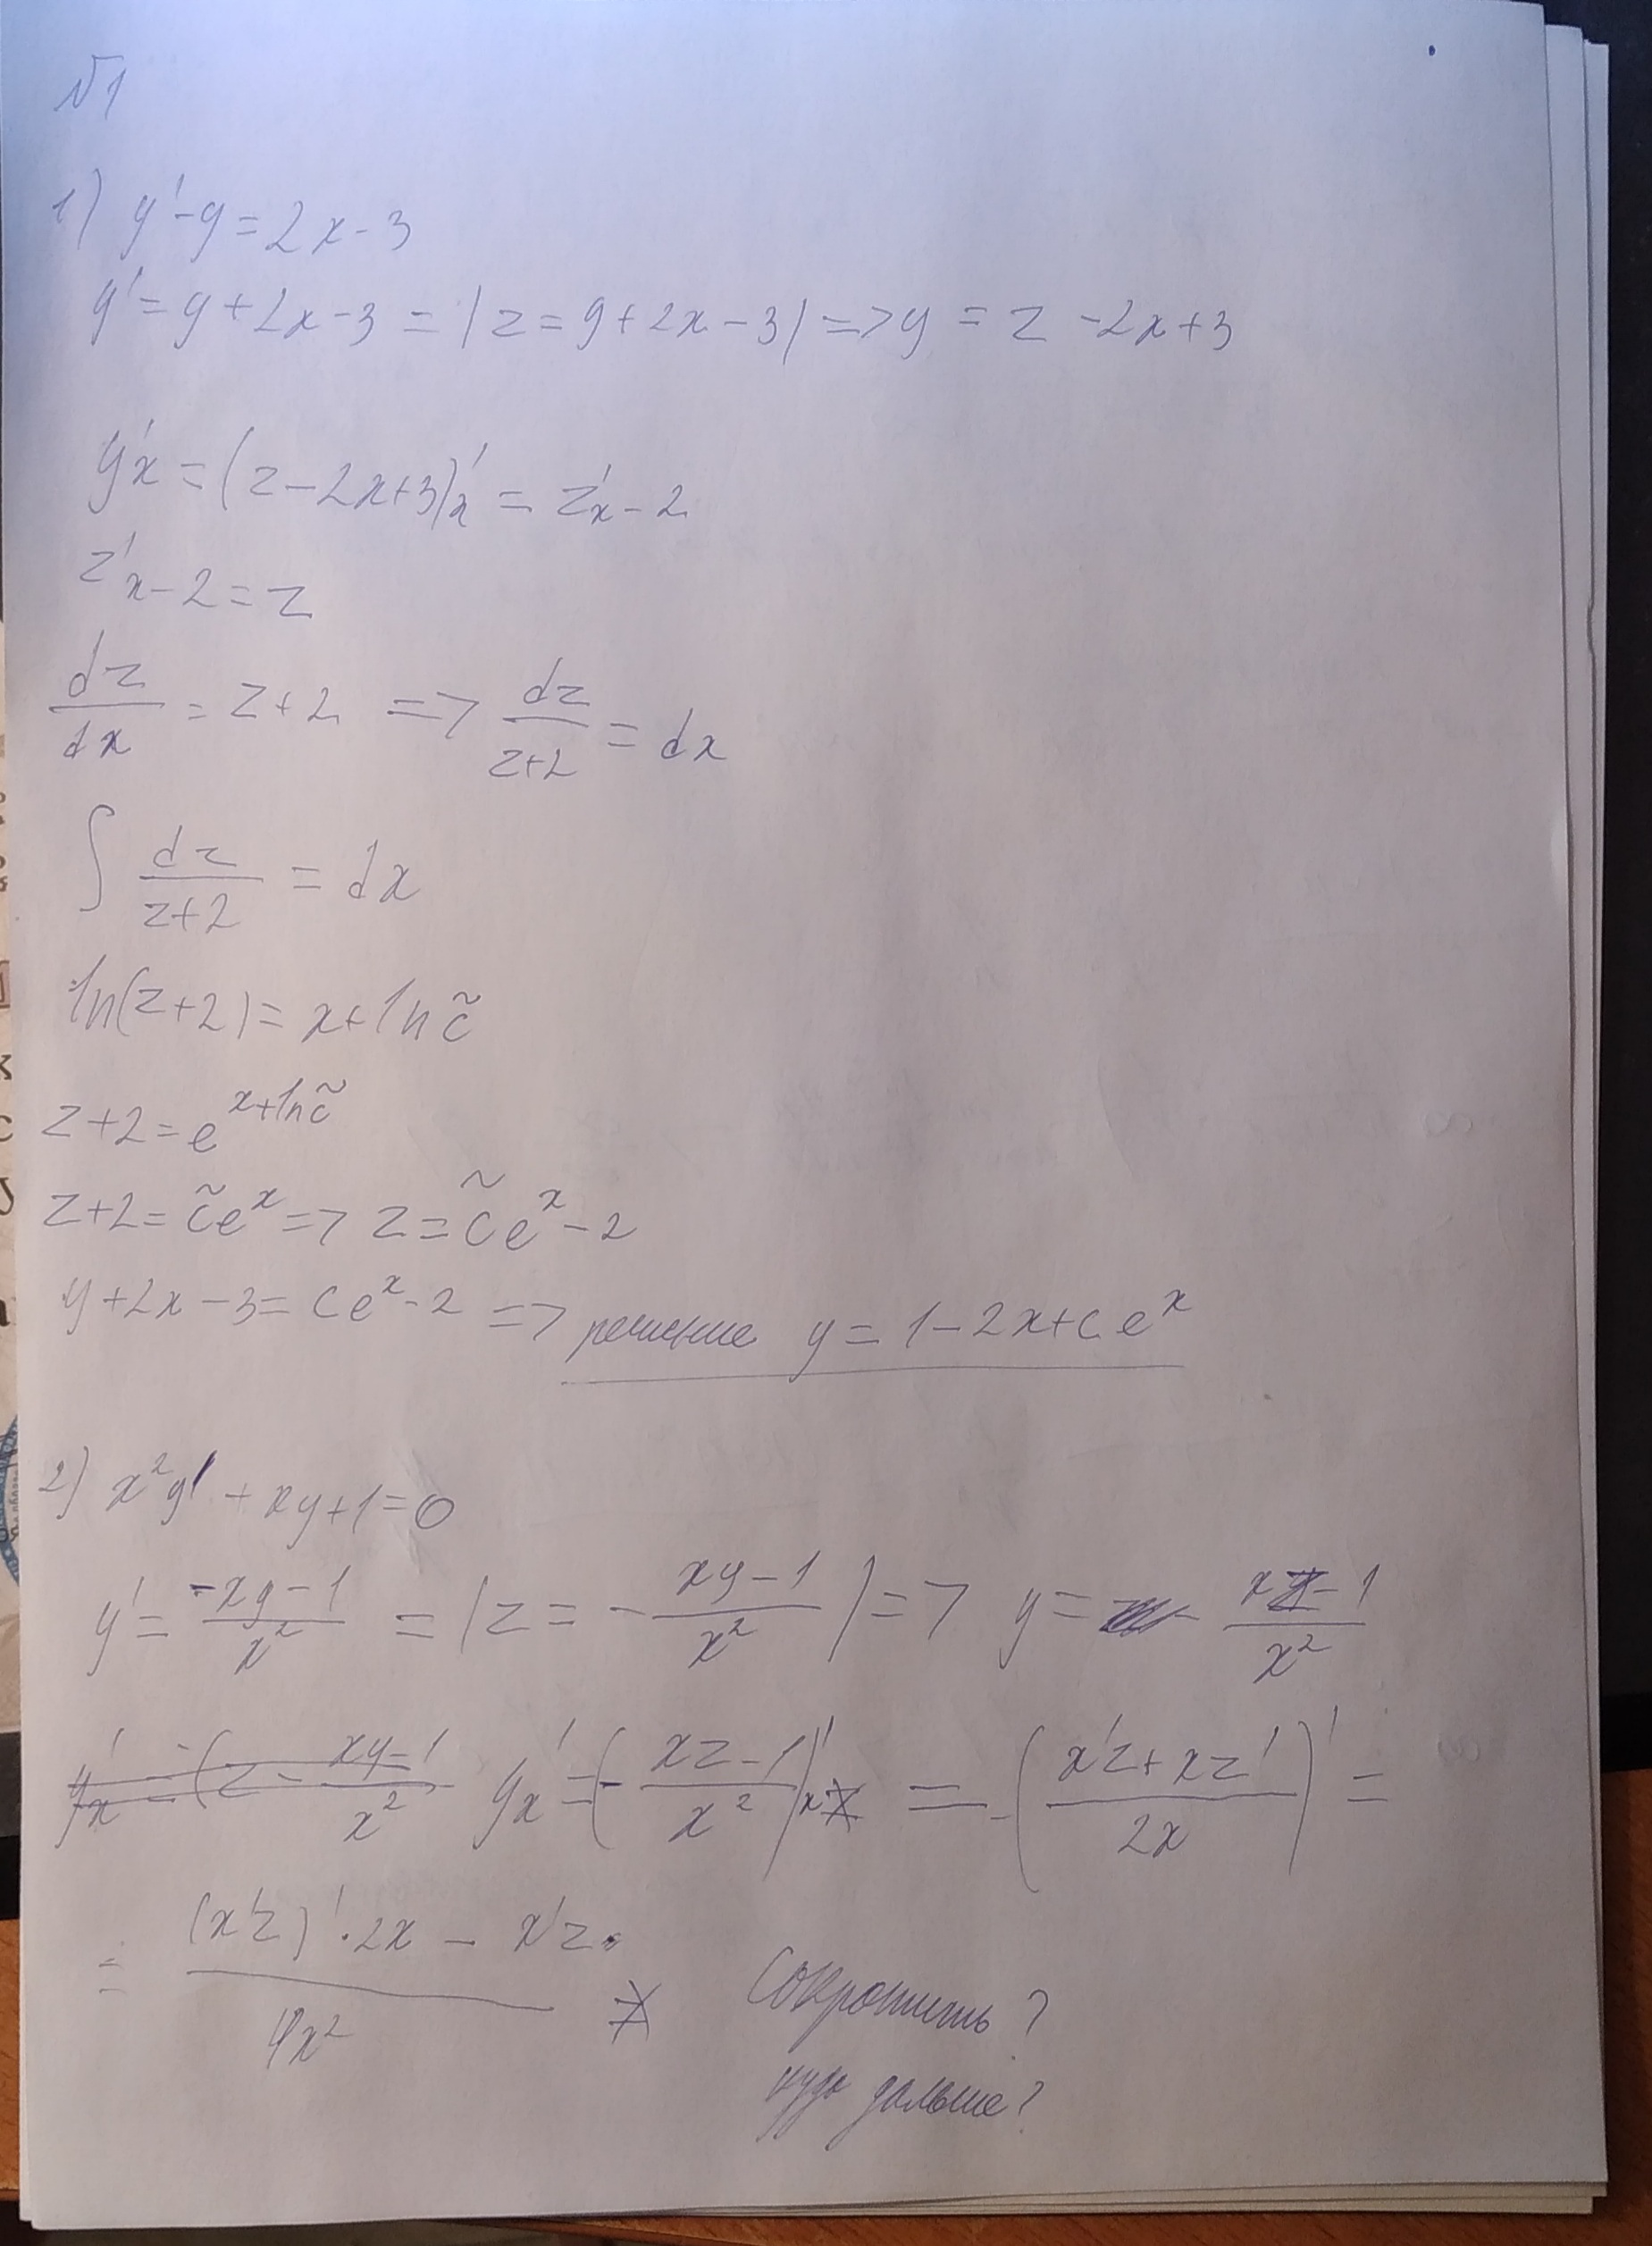 №1
1) y' - y = 2x - 3
y' = y + 2x - 3 = |z = y + 2x - 3| => y = z - 2x + 3
y'x = (z - 2x + 3)'x = z'x - 2
z'x - 2 = z
dz/dx = z + 2 => dz/(z+2) = dx
∫ dz/(z+2) = dx
ln(z+2) = x + ln c̃
z + 2 = e^(x + ln c̃)
z + 2 = c̃e^x => z = c̃e^x - 2
y + 2x - 3 = ce^x - 2 => решение y = 1 - 2x + ce^x
2) x²y' + xy + 1 = 0
y' = (-xy - 1)/x² = |z = -(xy - 1)/x²| => y = - (xz - 1)/x²
y'x = (z - (xy - 1)/x² y'x = (-(xz - 1)/x²)'x = -((x'z + xz')/2x)' =
= ((x'z)' · 2x - x'z ·)/4x² Сократить?
куда дальше?